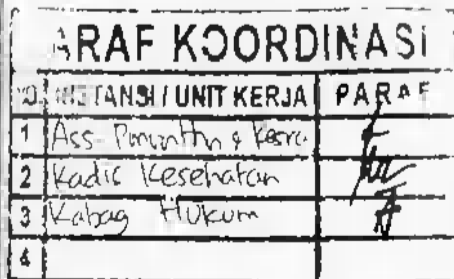 ARAF KOORDINASI
NO. INSTANSI / UNIT KERJA PARAF
1 Ass Pemerinthn & Kesra
2 Kadis Kesehatan
3 Kabag Hukum
4